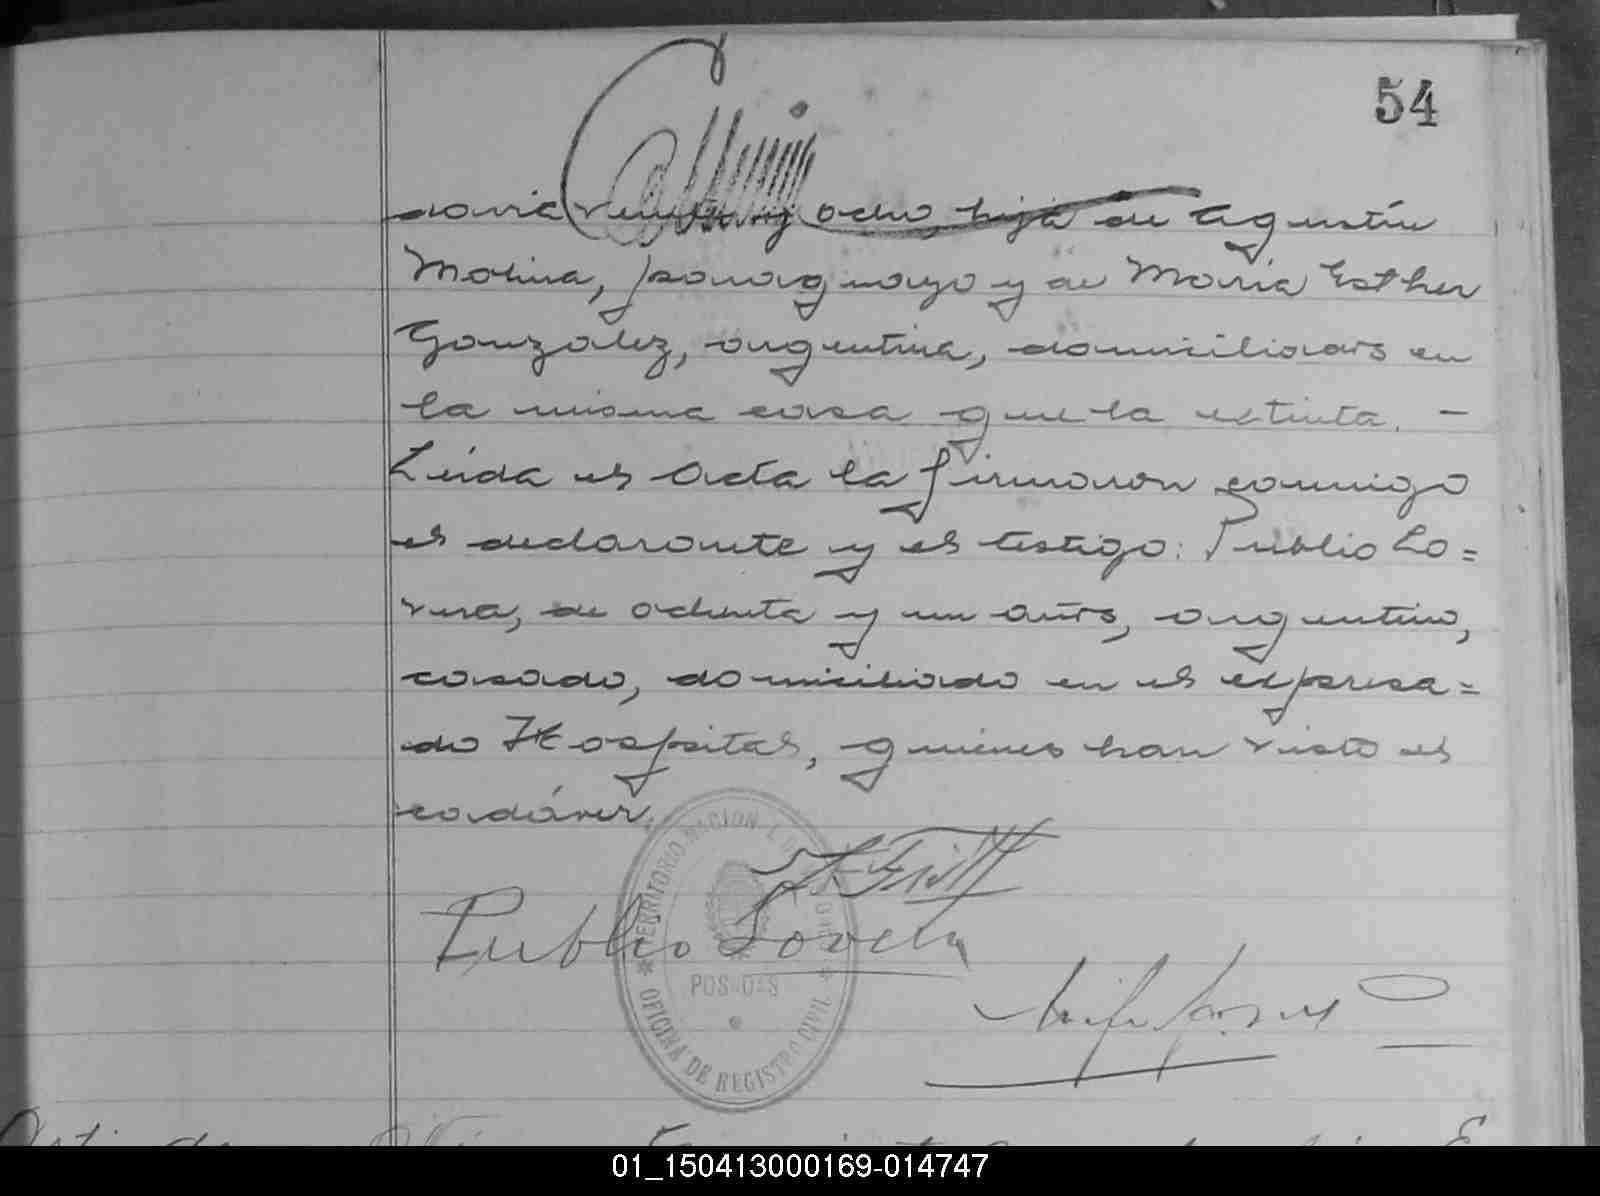 54
davia veintiocho, hija de Agustín
Molina, paraguayo y de María Esther
Gonzalez, argentina, domiciliados en
la misma casa que la extinta. —
Leída el Acta la firmaron conmigo
el declarante y el testigo: Publio Lo=
vera, de ochenta y un años, argentino,
casado, domiciliado en el expresa=
do Hospital, quienes han visto el
cadáver.
Publio Lovera
TERRITORIO NACIONAL
POSADAS
OFICINA DE REGISTRO CIVIL
01_150413000169-014747